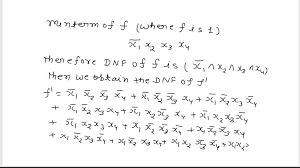 minterm of f (where f is 1)
x̄₁ x₂ x₃ x₄
Therefore DNF of f is (x̄₁ ∧ x₂ ∧ x₃ ∧ x₄)
Then we obtain the DNF of f'
f' = x̄₁ x̄₂ x̄₃ x̄₄ + x̄₁ x̄₂ x̄₃ x₄ + x̄₁ x̄₂ x₃ x̄₄
+ x̄₁ x̄₂ x₃ x₄ + x̄₁ x₂ x̄₃ x̄₄ + x̄₁ x₂ x̄₃ x₄
+ x̄₁ x₂ x₃ x̄₄ + x₁ x̄₂ x̄₃ x̄₄ + x₁ x̄₂ x̄₃ x₄
+ x₁ x̄₂ x₃ x̄₄ + x₁ x̄₂ x₃ x₄ + x₁ x₂ x̄₃ x̄₄ + x₁ x₂ x̄₃